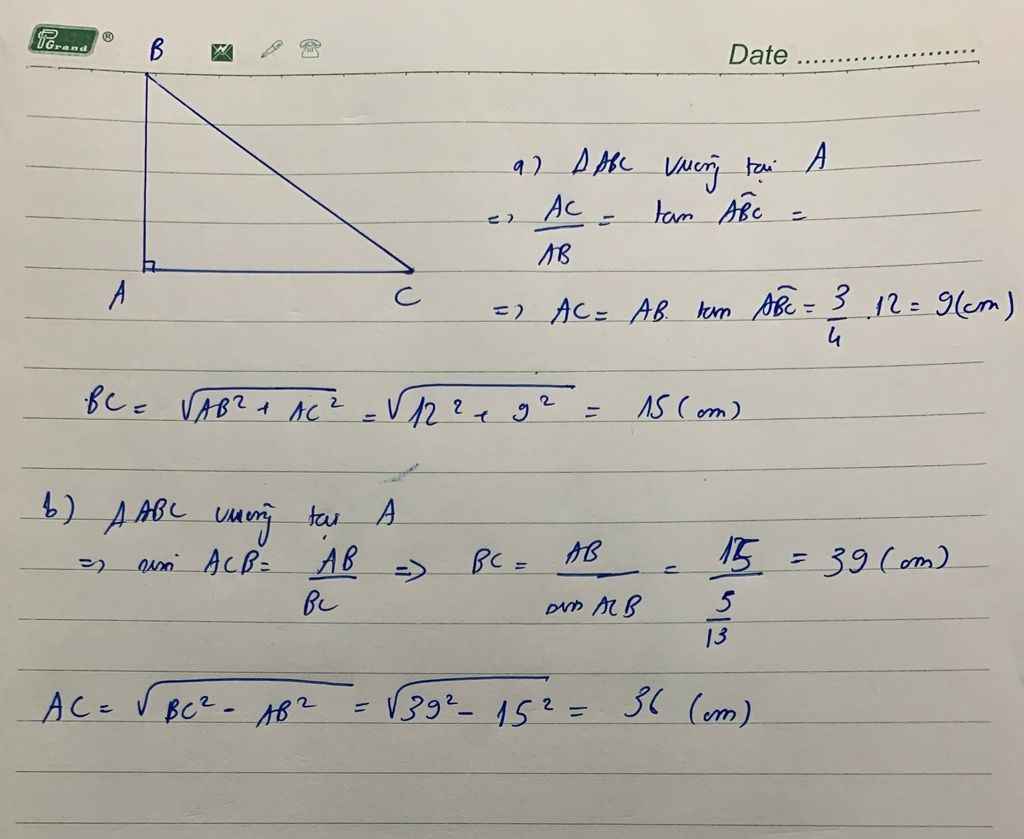 PGrand ®
Date ....................
B
A
C
a) ΔABC vuông tại A
=> AC/AB = tan ABC =
=> AC = AB. tan ABC = 3/4 . 12 = 9(cm)
BC = √AB² + AC² = √12² + 9² = 15 (cm)
b) ΔABC vuông tại A
=> sin ACB = AB/BC => BC = AB/sin ACB = 15/(5/13) = 39 (cm)
AC = √BC² - AB² = √39² - 15² = 36 (cm)